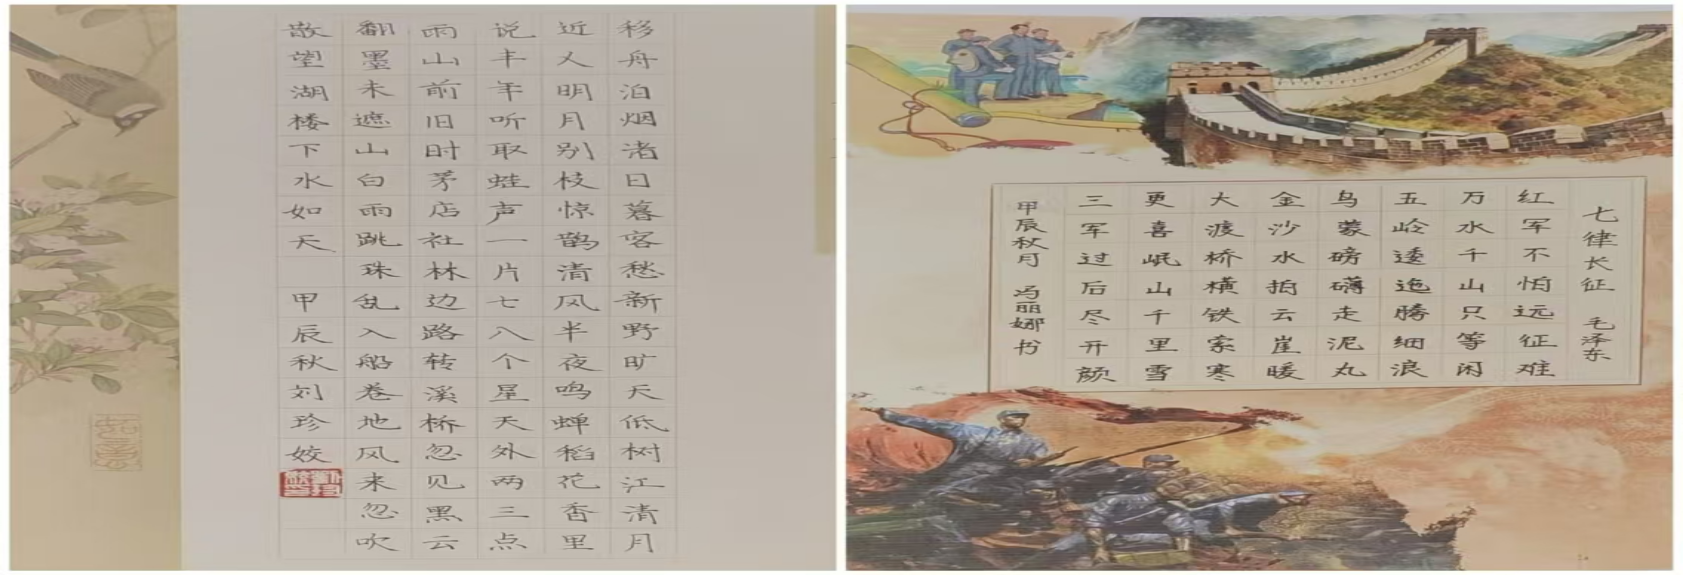 移舟泊烟渚日暮客愁新野旷天低树江清月
近人明月别枝惊鹊清风半夜鸣蝉稻花香里
说丰年听取蛙声一片七八个星天外两三点
雨山前旧时茅店社林边路转溪桥忽见黑云
翻墨未遮山白雨跳珠乱入船卷地风来忽吹
散望湖楼下水如天 甲辰秋刘珍姣
七律长征 毛泽东
红军不怕远征难
万水千山只等闲
五岭逶迤腾细浪
乌蒙磅礴走泥丸
金沙水拍云崖暖
大渡桥横铁索寒
更喜岷山千里雪
三军过后尽开颜
甲辰秋月 冯丽娜书